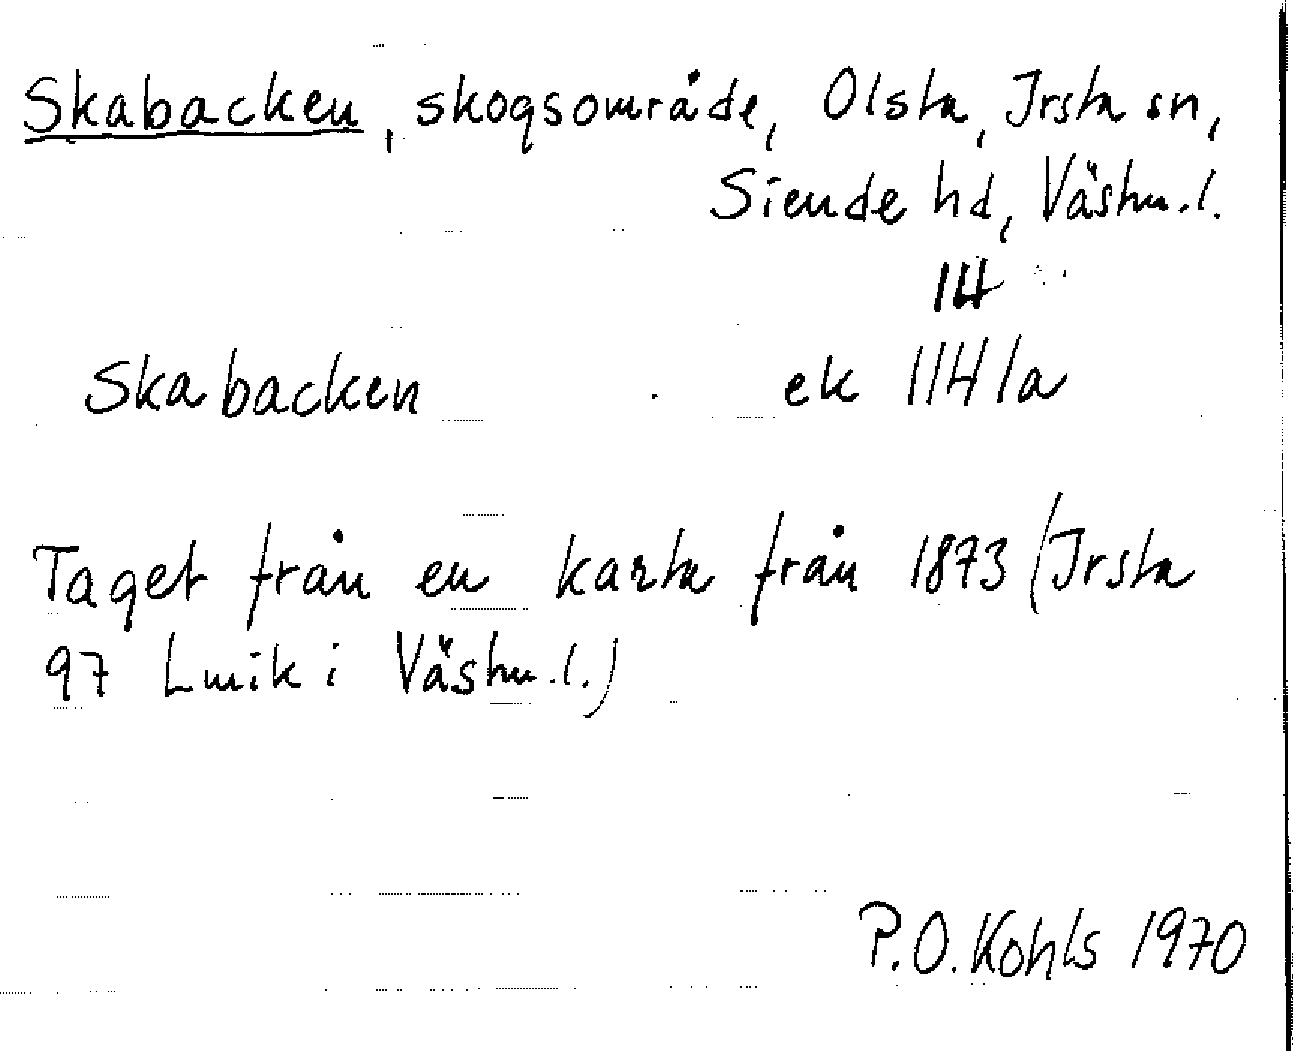 Skabacken, skogsområde, Olsta, Irsta sn,
Siende hd, Västm.l.
14
Skabacken ek 114/a
Taget från en karta från 1873 (Irsta
97 Lmik i Västm.l.)
P.O. Kohls 1970